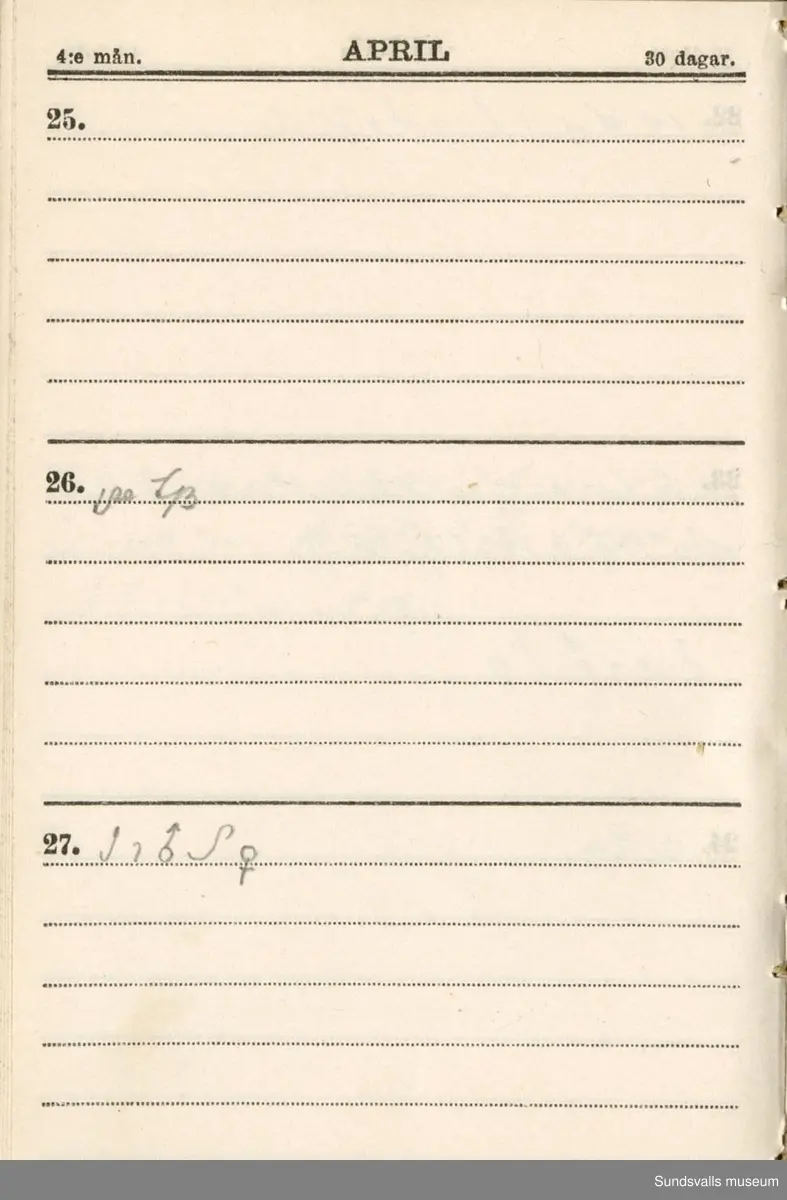 4:e mån.
APRIL
30 dagar.
25.
26.
27. ♂ ♀
Sundsvalls museum